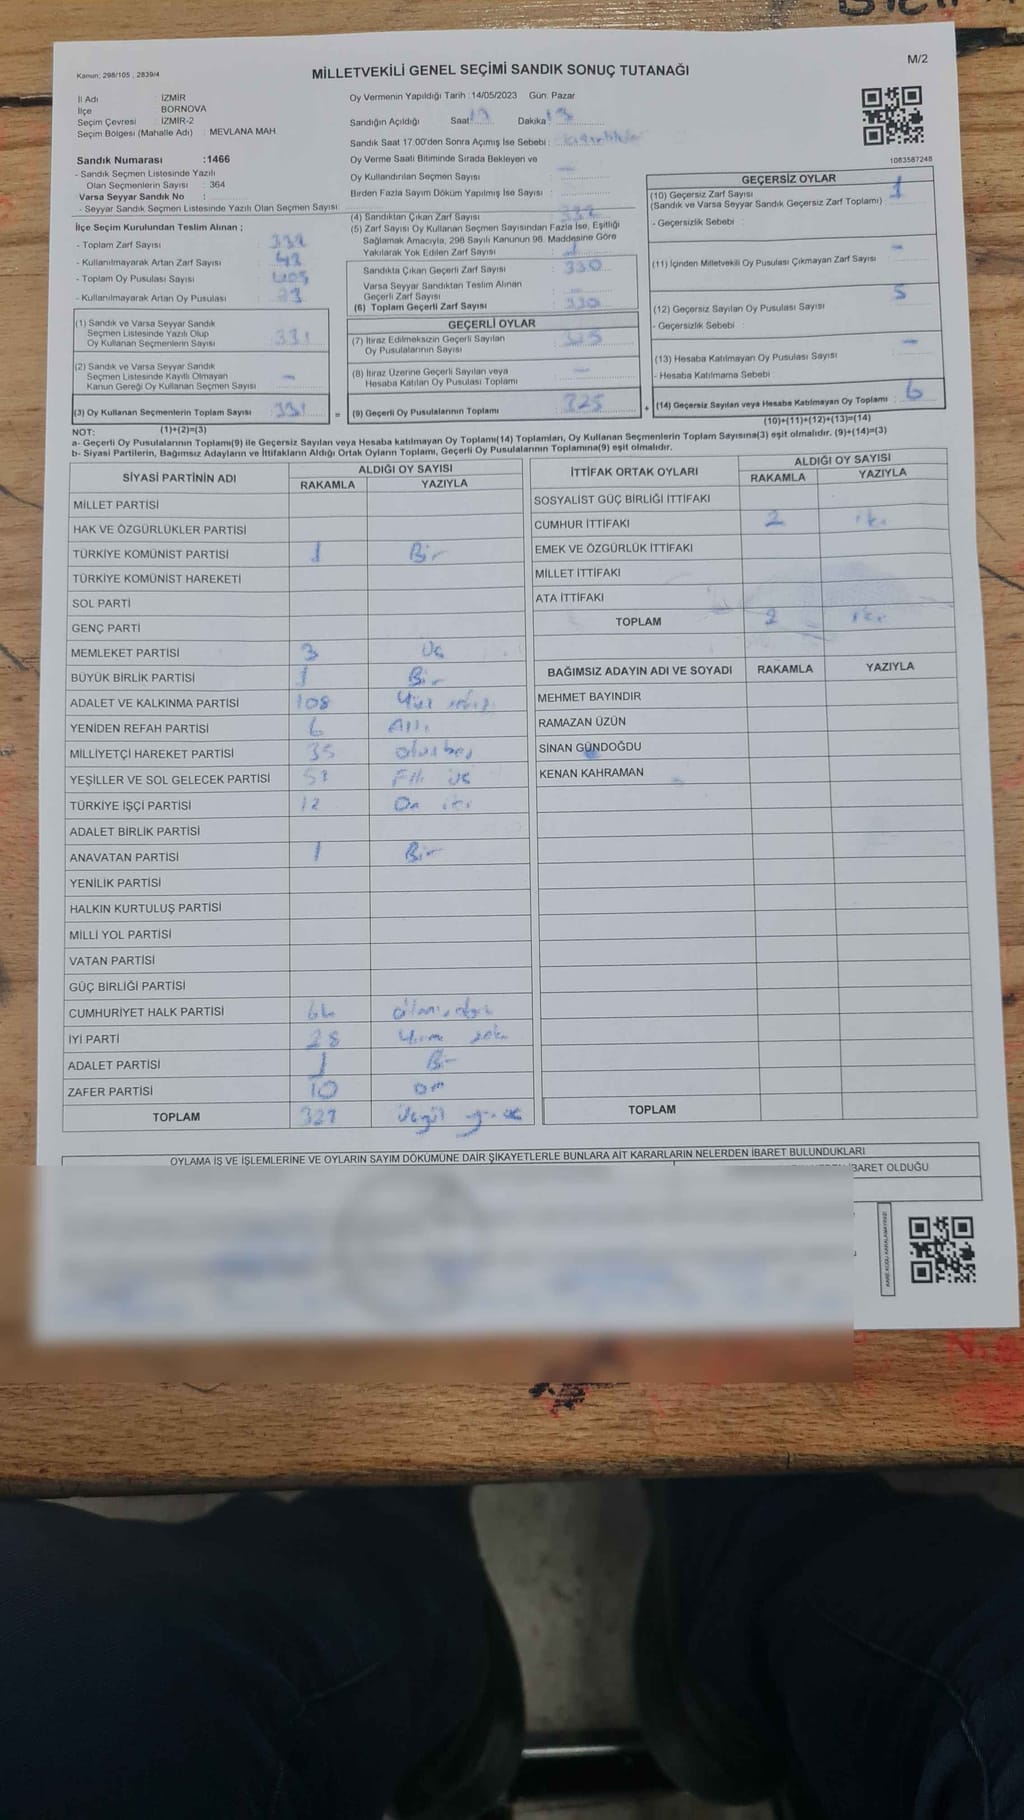 BİLİM
M/2
Kanun; 298/105 , 2839/4
MİLLETVEKİLİ GENEL SEÇİMİ SANDIK SONUÇ TUTANAĞI
İl Adı : İZMİR
İlçe BORNOVA
Seçim Çevresi : İZMİR-2
Seçim Bölgesi (Mahalle Adı) : MEVLANA MAH.
Oy Vermenin Yapıldığı Tarih :14/05/2023 Gün. Pazar
Sandığın Açıldığı Saat Dakika
Sandık Saat 17.00'den Sonra Açımış İse Sebebi :
Oy Verme Saati Bitiminde Sırada Bekleyen ve
Oy Kullandırılan Seçmen Sayısı
Birden Fazla Sayım Döküm Yapılmış İse Sayısı
1083587248
Sandık Numarası :1466
- Sandık Seçmen Listesinde Yazılı
Olan Seçmenlerin Sayısı : 364
Varsa Seyyar Sandık No :
- Seyyar Sandık Seçmen Listesinde Yazılı Olan Seçmen Sayısı
İlçe Seçim Kurulundan Teslim Alınan ;
- Toplam Zarf Sayısı
- Kullanılmayarak Artan Zarf Sayısı
- Toplam Oy Pusulası Sayısı
- Kullanılmayarak Artan Oy Pusulası
(1) Sandık ve Varsa Seyyar Sandık
Seçmen Listesinde Yazılı Olup
Oy Kullanan Seçmenlerin Sayısı 331
(2) Sandık ve Varsa Seyyar Sandık
Seçmen Listesinde Kayıtlı Olmayan
Kanun Gereği Oy Kullanan Seçmen Sayısı -
(3) Oy Kullanan Seçmenlerin Toplam Sayısı 331 =
(1)+(2)=(3)
(4) Sandıktan Çıkan Zarf Sayısı
(5) Zarf Sayısı Oy Kullanan Seçmen Sayısından Fazla İse, Eşitliği
Sağlamak Amacıyla, 298 Sayılı Kanunun 98. Maddesine Göre
Yakılarak Yok Edilen Zarf Sayısı
Sandıkta Çıkan Geçerli Zarf Sayısı 330
Varsa Seyyar Sandıktan Teslim Alınan
Geçerli Zarf Sayısı
(6) Toplam Geçerli Zarf Sayısı 330
GEÇERLİ OYLAR
(7) İtiraz Edilmeksizin Geçerli Sayılan
Oy Pusulalarının Sayısı
(8) İtiraz Üzerine Geçerli Sayılan veya
Hesaba Katılan Oy Pusulası Toplamı -
(9) Geçerli Oy Pusulalarının Toplamı 325 +
GEÇERSİZ OYLAR
(10) Geçersiz Zarf Sayısı 1
(Sandık ve Varsa Seyyar Sandık Geçersiz Zarf Toplamı)
- Geçersizlik Sebebi :
(11) İçinden Milletvekili Oy Pusulası Çıkmayan Zarf Sayısı -
(12) Geçersiz Sayılan Oy Pusulası Sayısı 5
- Geçersizlik Sebebi :
(13) Hesaba Katılmayan Oy Pusulası Sayısı -
- Hesaba Katılmama Sebebi
(14) Geçersiz Sayılan veya Hesaba Katılmayan Oy Toplamı 6
(10)+(11)+(12)+(13)=(14)
NOT:
a- Geçerli Oy Pusulalarının Toplamı(9) ile Geçersiz Sayılan veya Hesaba katılmayan Oy Toplamı(14) Toplamları, Oy Kullanan Seçmenlerin Toplam Sayısına(3) eşit olmalıdır. (9)+(14)=(3)
b- Siyasi Partilerin, Bağımsız Adayların ve İttifakların Aldığı Ortak Oyların Toplamı, Geçerli Oy Pusulalarının Toplamına(9) eşit olmalıdır.
SİYASİ PARTİNİN ADI ALDIĞI OY SAYISI
RAKAMLA YAZIYLA
MİLLET PARTİSİ
HAK VE ÖZGÜRLÜKLER PARTİSİ
TÜRKİYE KOMÜNİST PARTİSİ 1 Bir
TÜRKİYE KOMÜNİST HAREKETİ
SOL PARTİ
GENÇ PARTİ
MEMLEKET PARTİSİ 3 Üç
BÜYÜK BİRLİK PARTİSİ 1 Bir
ADALET VE KALKINMA PARTİSİ 108 Yüz sekiz
YENİDEN REFAH PARTİSİ 6 Altı
MİLLİYETÇİ HAREKET PARTİSİ 35 otuzbeş
YEŞİLLER VE SOL GELECEK PARTİSİ 53 Elli üç
TÜRKİYE İŞÇİ PARTİSİ 12 On iki
ADALET BİRLİK PARTİSİ
ANAVATAN PARTİSİ 1 Bir
YENİLİK PARTİSİ
HALKIN KURTULUŞ PARTİSİ
MİLLİ YOL PARTİSİ
VATAN PARTİSİ
GÜÇ BİRLİĞİ PARTİSİ
CUMHURİYET HALK PARTİSİ
İYİ PARTİ 28 Yirmi sekiz
ADALET PARTİSİ 1 Bir
ZAFER PARTİSİ 10 on
TOPLAM 323
İTTİFAK ORTAK OYLARI ALDIĞI OY SAYISI
RAKAMLA YAZIYLA
SOSYALİST GÜÇ BİRLİĞİ İTTİFAKI
CUMHUR İTTİFAKI 2 iki
EMEK VE ÖZGÜRLÜK İTTİFAKI
MİLLET İTTİFAKI
ATA İTTİFAKI
TOPLAM 2 iki
BAĞIMSIZ ADAYIN ADI VE SOYADI RAKAMLA YAZIYLA
MEHMET BAYINDIR
RAMAZAN ÜZÜN
SİNAN GÜNDOĞDU
KENAN KAHRAMAN
TOPLAM
OYLAMA İŞ VE İŞLEMLERİNE VE OYLARIN SAYIM DÖKÜMÜNE DAİR ŞİKAYETLERLE BUNLARA AİT KARARLARIN NELERDEN İBARET BULUNDUKLARI
İBARET OLDUĞU
KARE KODU KARALAMAYINIZ